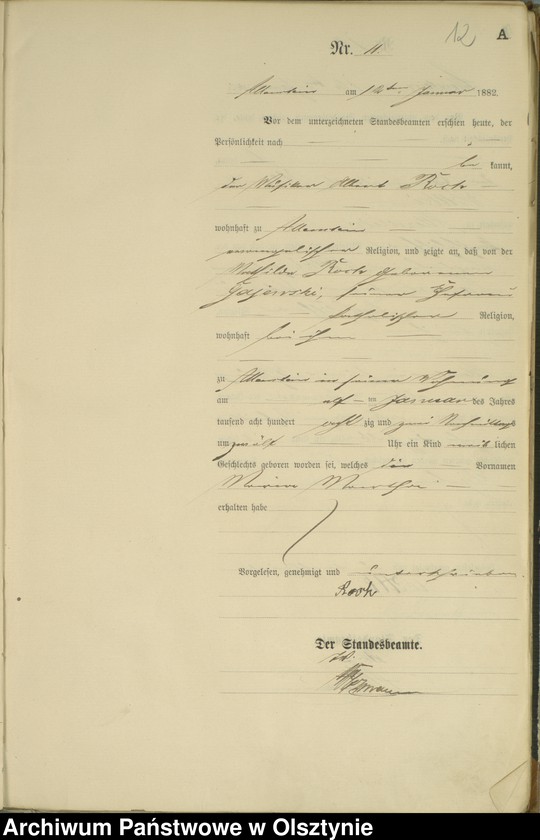 12
A
Nr. 11
Allenstein am 12t. Januar 1882.
Vor dem unterzeichneten Standesbeamten erschien heute, der
Persönlichkeit nach
be kannt,
der Albert
wohnhaft zu Allenstein
evangelischer Religion, und zeigte an, daß von der
Mathilde geborenen
Gajewski, seiner Ehefrau
katholischer Religion,
wohnhaft bei ihm
zu Allenstein in seiner Wohnung
am elf ten Januar des Jahres
tausend acht hundert acht zig und zwei Nachmittags
um zwölf Uhr ein Kind weib lichen
Geschlechts geboren worden sei, welches die Vornamen
Martha
erhalten habe
Vorgelesen, genehmigt und unterschrieben
Der Standesbeamte.
Archiwum Państwowe w Olsztynie